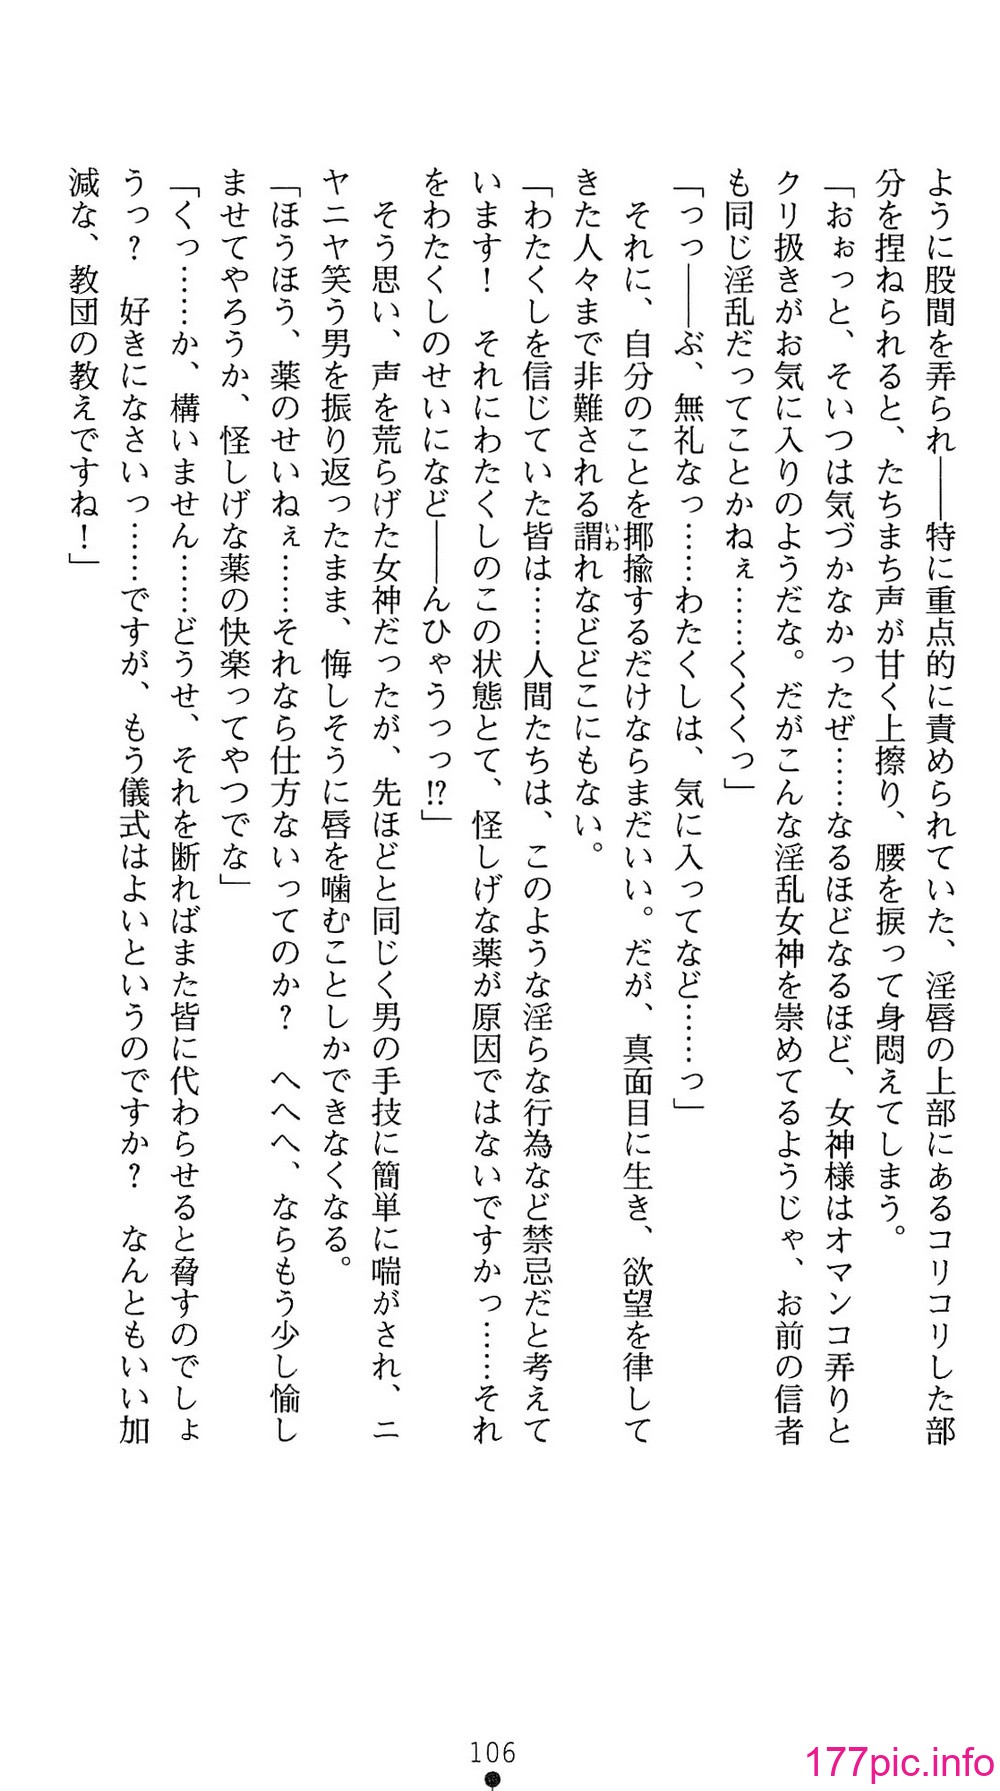 ように股間を弄られ――特に重点的に責められていた、淫唇の上部にあるコリコリした部
分を捏ねられると、たちまち声が甘く上擦り、腰を捩って身悶えてしまう。
「おぉっと、そいつは気づかなかったぜ……なるほどなるほど、女神様はオマンコ弄りと
クリ扱きがお気に入りのようだな。だがこんな淫乱女神を崇めてるようじゃ、お前の信者
も同じ淫乱だってことかねぇ……くくくっ」
「っっ――ぶ、無礼なっ……わたくしは、気に入ってなど……っ」
　それに、自分のことを揶揄するだけならまだいい。だが、真面目に生き、欲望を律して
きた人々まで非難される謂れなどどこにもない。
いわ
「わたくしを信じていた皆は……人間たちは、このような淫らな行為など禁忌だと考えて
います！　それにわたくしのこの状態とて、怪しげな薬が原因ではないですかっ……それ
をわたくしのせいになど――んひゃうっっ!?」
　そう思い、声を荒らげた女神だったが、先ほどと同じく男の手技に簡単に喘がされ、ニ
ヤニヤ笑う男を振り返ったまま、悔しそうに唇を噛むことしかできなくなる。
「ほうほう、薬のせいねぇ……それなら仕方ないってのか？　へへへ、ならもう少し愉し
ませてやろうか、怪しげな薬の快楽ってやつでな」
「くっ……か、構いません……どうせ、それを断ればまた皆に代わらせると脅すのでしょ
うっ？　好きになさいっ……ですが、もう儀式はよいというのですか？　なんともいい加
減な、教団の教えですね！」
106
177pic.info